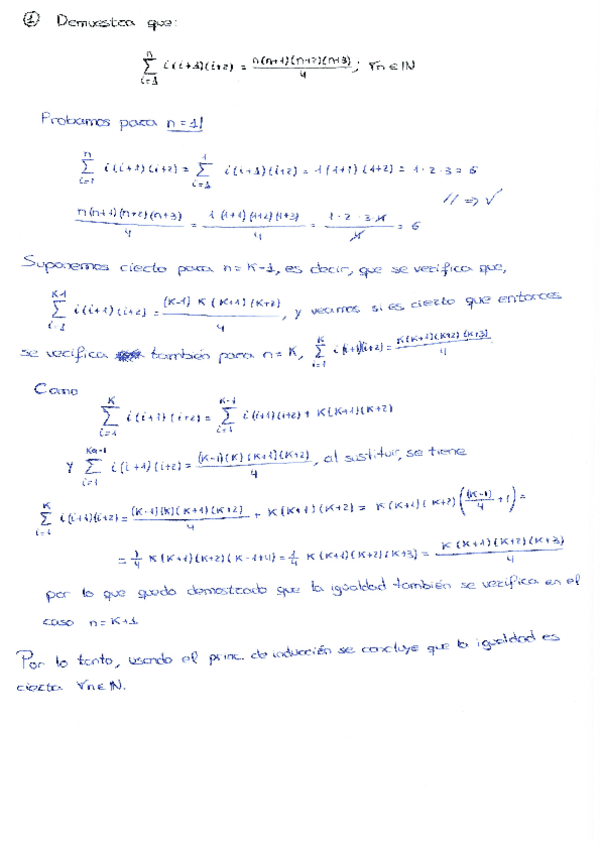 ① Demuestra que:
∑_{i=1}^{n} i(i+1)(i+2) = n(n+1)(n+2)(n+3)/4; ∀n∈ℕ
Probamos para n=1/
∑_{i=1}^{n} i(i+1)(i+2) = ∑_{i=1}^{1} i(i+1)(i+2) = 1(1+1)(1+2) = 1·2·3 = 6
// ⇒ ✓
n(n+1)(n+2)(n+3)/4 = 1(1+1)(1+2)(1+3)/4 = 1·2·3·4/4 = 6
Suponemos cierto para n=K-1, es decir, que se verifica que,
∑_{i=1}^{K-1} i(i+1)(i+2) = (K-1)K(K+1)(K+2)/4, y veamos si es cierto que entonces
se verifica también para n=K, ∑_{i=1}^{K} i(i+1)(i+2) = K(K+1)(K+2)(K+3)/4
Como
∑_{i=1}^{K} i(i+1)(i+2) = ∑_{i=1}^{K-1} i(i+1)(i+2) + K(K+1)(K+2)
y ∑_{i=1}^{K-1} i(i+1)(i+2) = (K-1)(K)(K+1)(K+2)/4, al sustituir, se tiene
∑_{i=1}^{K} i(i+1)(i+2) = (K-1)(K)(K+1)(K+2)/4 + K(K+1)(K+2) = K(K+1)(K+2)((K-1)/4 + 1) =
= 1/4 K(K+1)(K+2)(K-1+4) = 1/4 K(K+1)(K+2)(K+3) = K(K+1)(K+2)(K+3)/4
por lo que queda demostrado que la igualdad también se verifica en el
caso n=K+1
Por lo tanto, usando el princ. de inducción se concluye que la igualdad es
cierta ∀n∈ℕ.